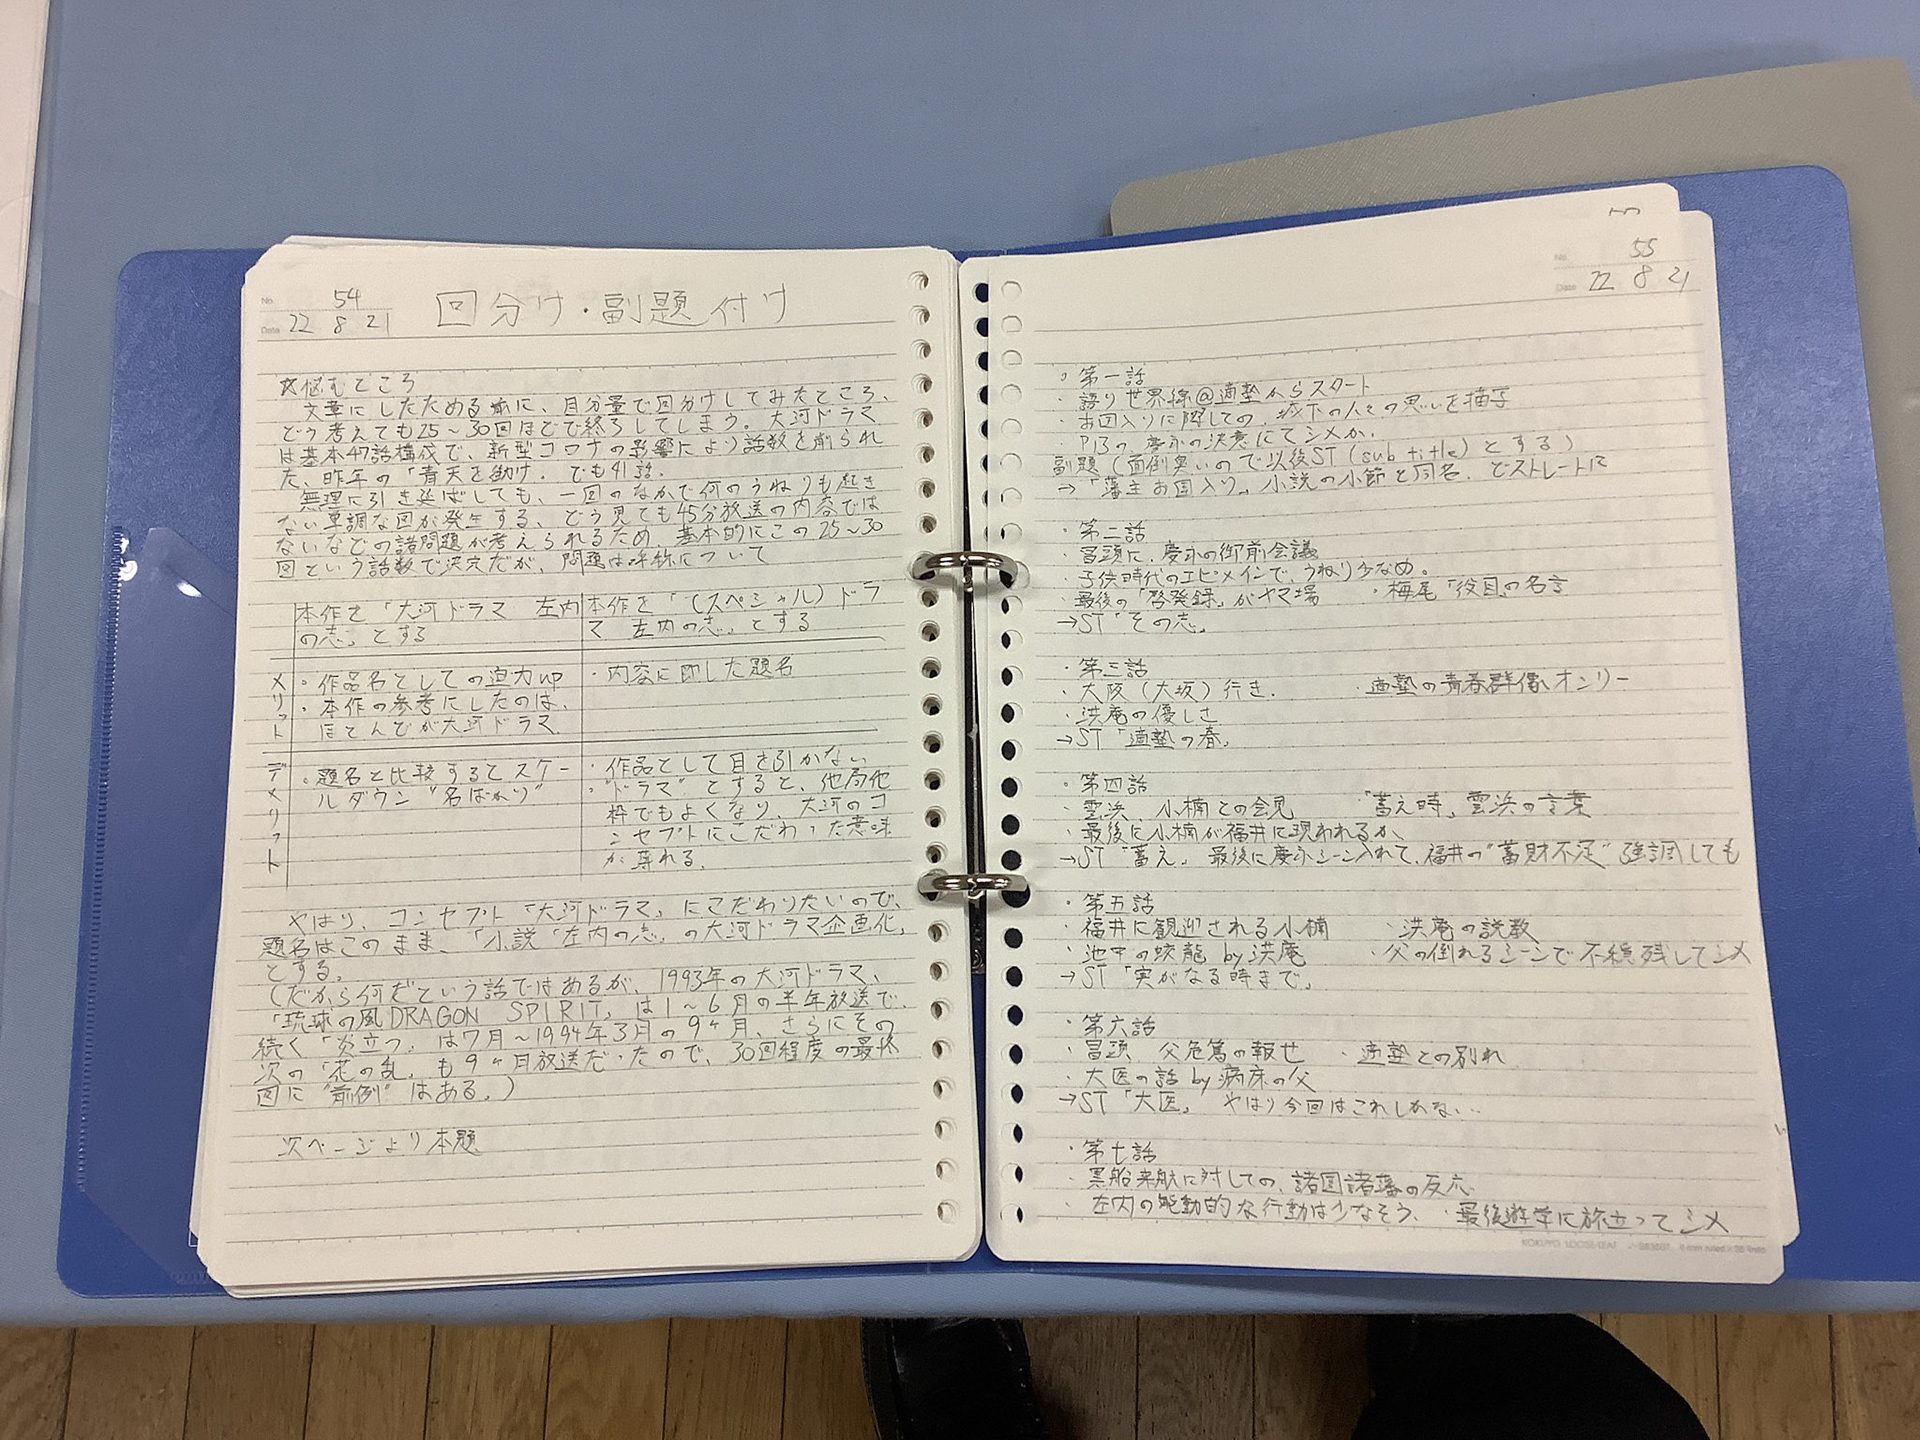 No. 54
Date 22 8 21
回分け・副題付け
☆悩むどころ
文章にしたためる前に、自分量で回分けしてみたところ、
どう考えても25〜30回ほどで終了してしまう。大河ドラマ
は基本47話構成で、新型コロナの影響により話数を削られ
た、昨年の「青天を衝け」でも41話。
無理に引き延ばしても、一回のなかで何のうねりも起き
ない単調な回が発生する、どう見ても45分放送の内容では
ないなどの諸問題が考えられるため、基本的にこの25〜30
回という話数で決定だが、問題は呼称について
本作を「大河ドラマ 左内
の志」とする
本作を「(スペシャル)ドラ
マ 左内の志」とする
メリット
・作品名としての迫力up
・本作の参考にしたのは、
ほとんどが大河ドラマ
・内容に即した題名
デメリット
・題名と比較するとスケー
ルダウン "名ばかり"
・作品として目を引かない
・"ドラマ"とすると、他局他
枠でもよくなり、大河のコ
ンセプトにこだわった意味
が薄れる。
やはり、コンセプト「大河ドラマ」にこだわりたいので、
題名はこのまま、「小説『左内の志』の大河ドラマ企画化」
とする。
(だから何だという話ではあるが、1993年の大河ドラマ、
「琉球の風DRAGON SPIRIT」は1〜6月の半年放送で、
続く「炎立つ」は7月〜1994年3月の9ヶ月、さらにその
次の「花の乱」も9ヶ月放送だったので、30回程度の最終
回に"前例"はある。)
次ページより本題
No. 55
Date 22 8 21
・第一話
・語り世界線@適塾からスタート
・お国入りに際しての、城下の人々の思いを描写
P13の、慶永の決意にてシメか。
副題(面倒臭いので以後ST(sub title)とする)
→「藩主お国入り」小説の小節と同名、どストレートに
・第二話
・冒頭に、慶永の御前会議
・子供時代のエピメインで、うねり少なめ。
・最後の「啓発録」がヤマ場 ・梅尾「役目」の名言
→ST「その志」
・第三話
・大阪(大坂)行き. ・適塾の青春群像オンリー
・洪庵の優しさ
→ST「適塾の春」
・第四話
・雲浜、小楠との会見 「蓄え時」雲浜の言葉
・最後に小楠が福井に現われるか、
→ST「蓄え」 最後に慶永シーン入れて、福井の"蓄財不足"強調しても
・第五話
・福井に観迎される小楠 ・洪庵の説教
・池中の蛟龍 by洪庵 ・父の倒れるシーンで不穏残してシメ
→ST「実がなる時まで」
・第六話
・冒頭 父危篤の報せ ・適塾との別れ
・大医の話 by 病床の父
→ST「大医」 やはり今回はこれしかない…
・第七話
・黒船来航に対しての、諸国諸藩の反応
・左内の能動的な行動は少なそう、 ・最後遊学に旅立ってシメ
KOKUYO LOOSE-LEAF